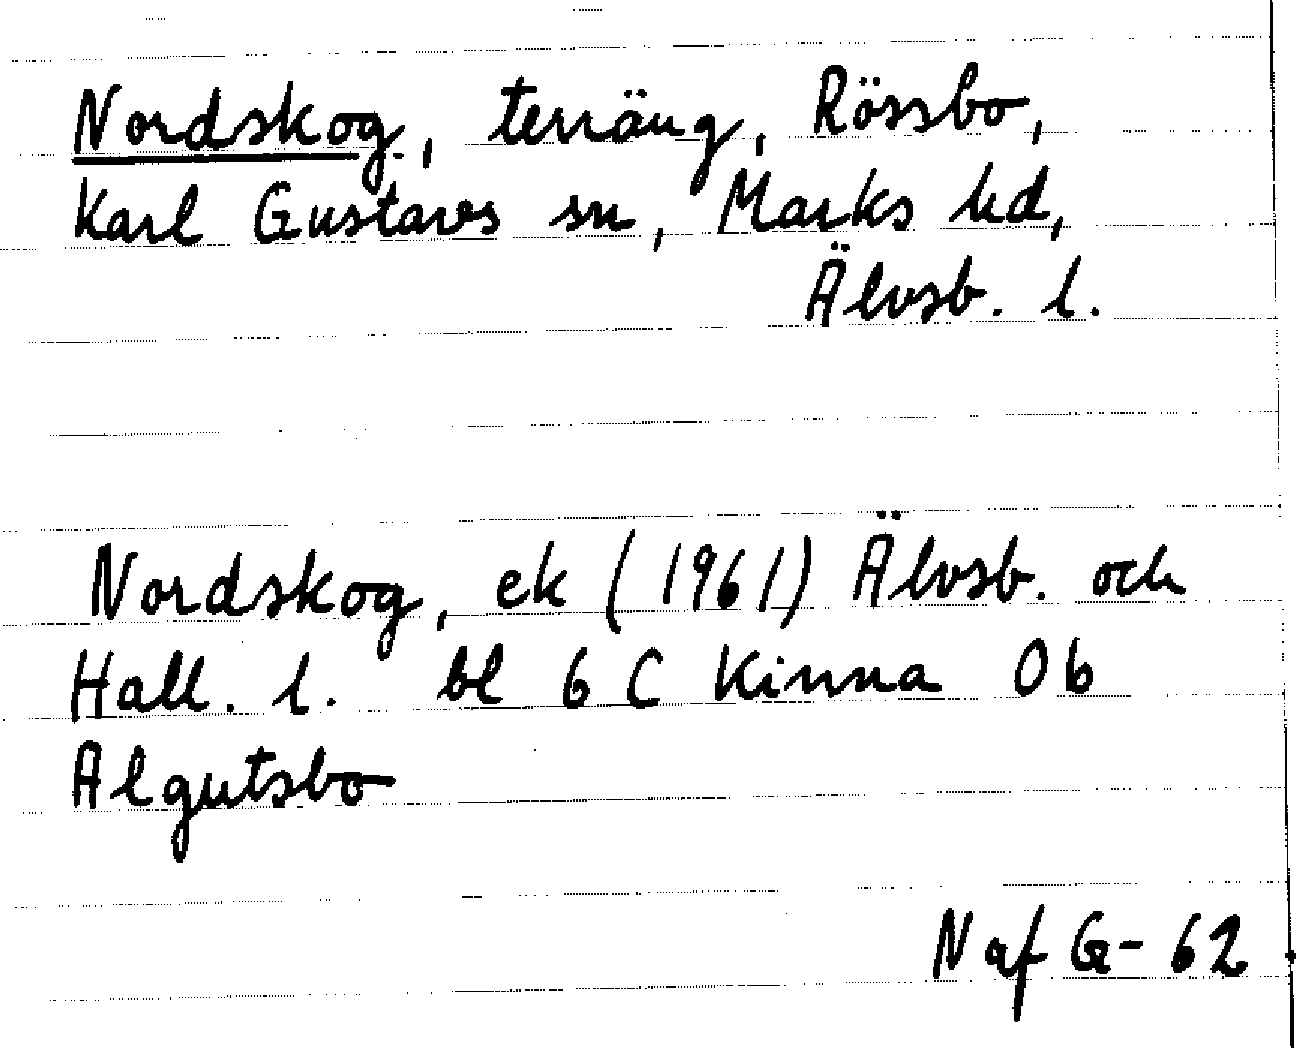 Nordskog, terräng, Rössbo,
Karl Gustavs sn, Marks hd,
Älvsb. l.
Nordskog, ek (1961) Älvsb. och
Hall. l. bl 6 C Kinna 0b
Algutsbo
N af G-62